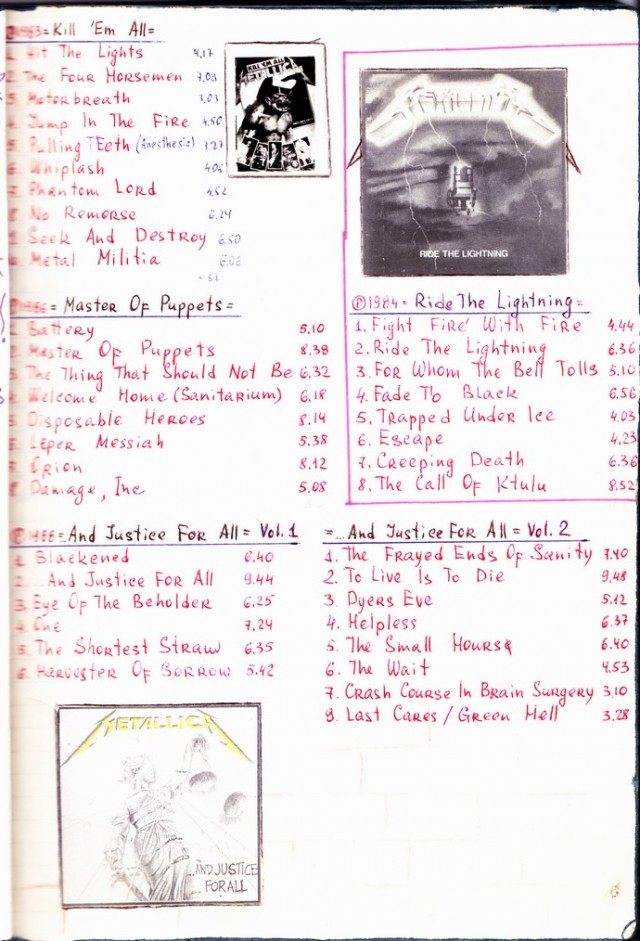 1983 = Kill 'Em All =
1. Hit The Lights 4.17
2. The Four Horsemen 7.08
3. Motorbreath 3.03
4. Jump In The Fire 4.50
5. Pulling TEeth (Anesthesia) 3.27
6. Whiplash 4.06
7. Phantom Lord 4.52
8. No Remorse 6.24
9. Seek And Destroy 6.50
Metal Militia 6.02
KILL 'EM ALL
METALLICA
METALLICA
RIDE THE LIGHTNING
1986 = Master Of Puppets =
1. Battery 5.10
2. Master Of Puppets 8.38
3. The Thing That Should Not Be 6.32
4. Welcome Home (Sanitarium) 6.18
5. Disposable Heroes 8.14
6. Leper Messiah 5.38
7. Orion 8.12
8. Damage, Inc 5.08
℗1984 = Ride The Lightning =
1. Fight Fire With Fire 4.44
2. Ride The Lightning 6.36
3. For Whom The Bell Tolls 5.10
4. Fade To Black 6.56
5. Trapped Under Ice 4.03
6. Escape 4.23
7. Creeping Death 6.36
8. The Call Of Ktulu 8.52
= And Justice For All = Vol. 1
1. Blackened 6.40
2. ...And Justice For All 9.44
3. Eye Of The Beholder 6.25
4. One 7.24
5. The Shortest Straw 6.35
6. Harvester Of Sorrow 5.42
=...And Justice For All = Vol. 2
1. The Frayed Ends Of Sanity 7.40
2. To Live Is To Die 9.48
3. Dyers Eve 5.12
4. Helpless 6.37
5. The Small Hours 6.40
6. The Wait 4.53
7. Crash Course In Brain Surgery 3.10
9. Last Cares / Green Hell 3.28
METALLICA
...AND JUSTICE
FOR ALL